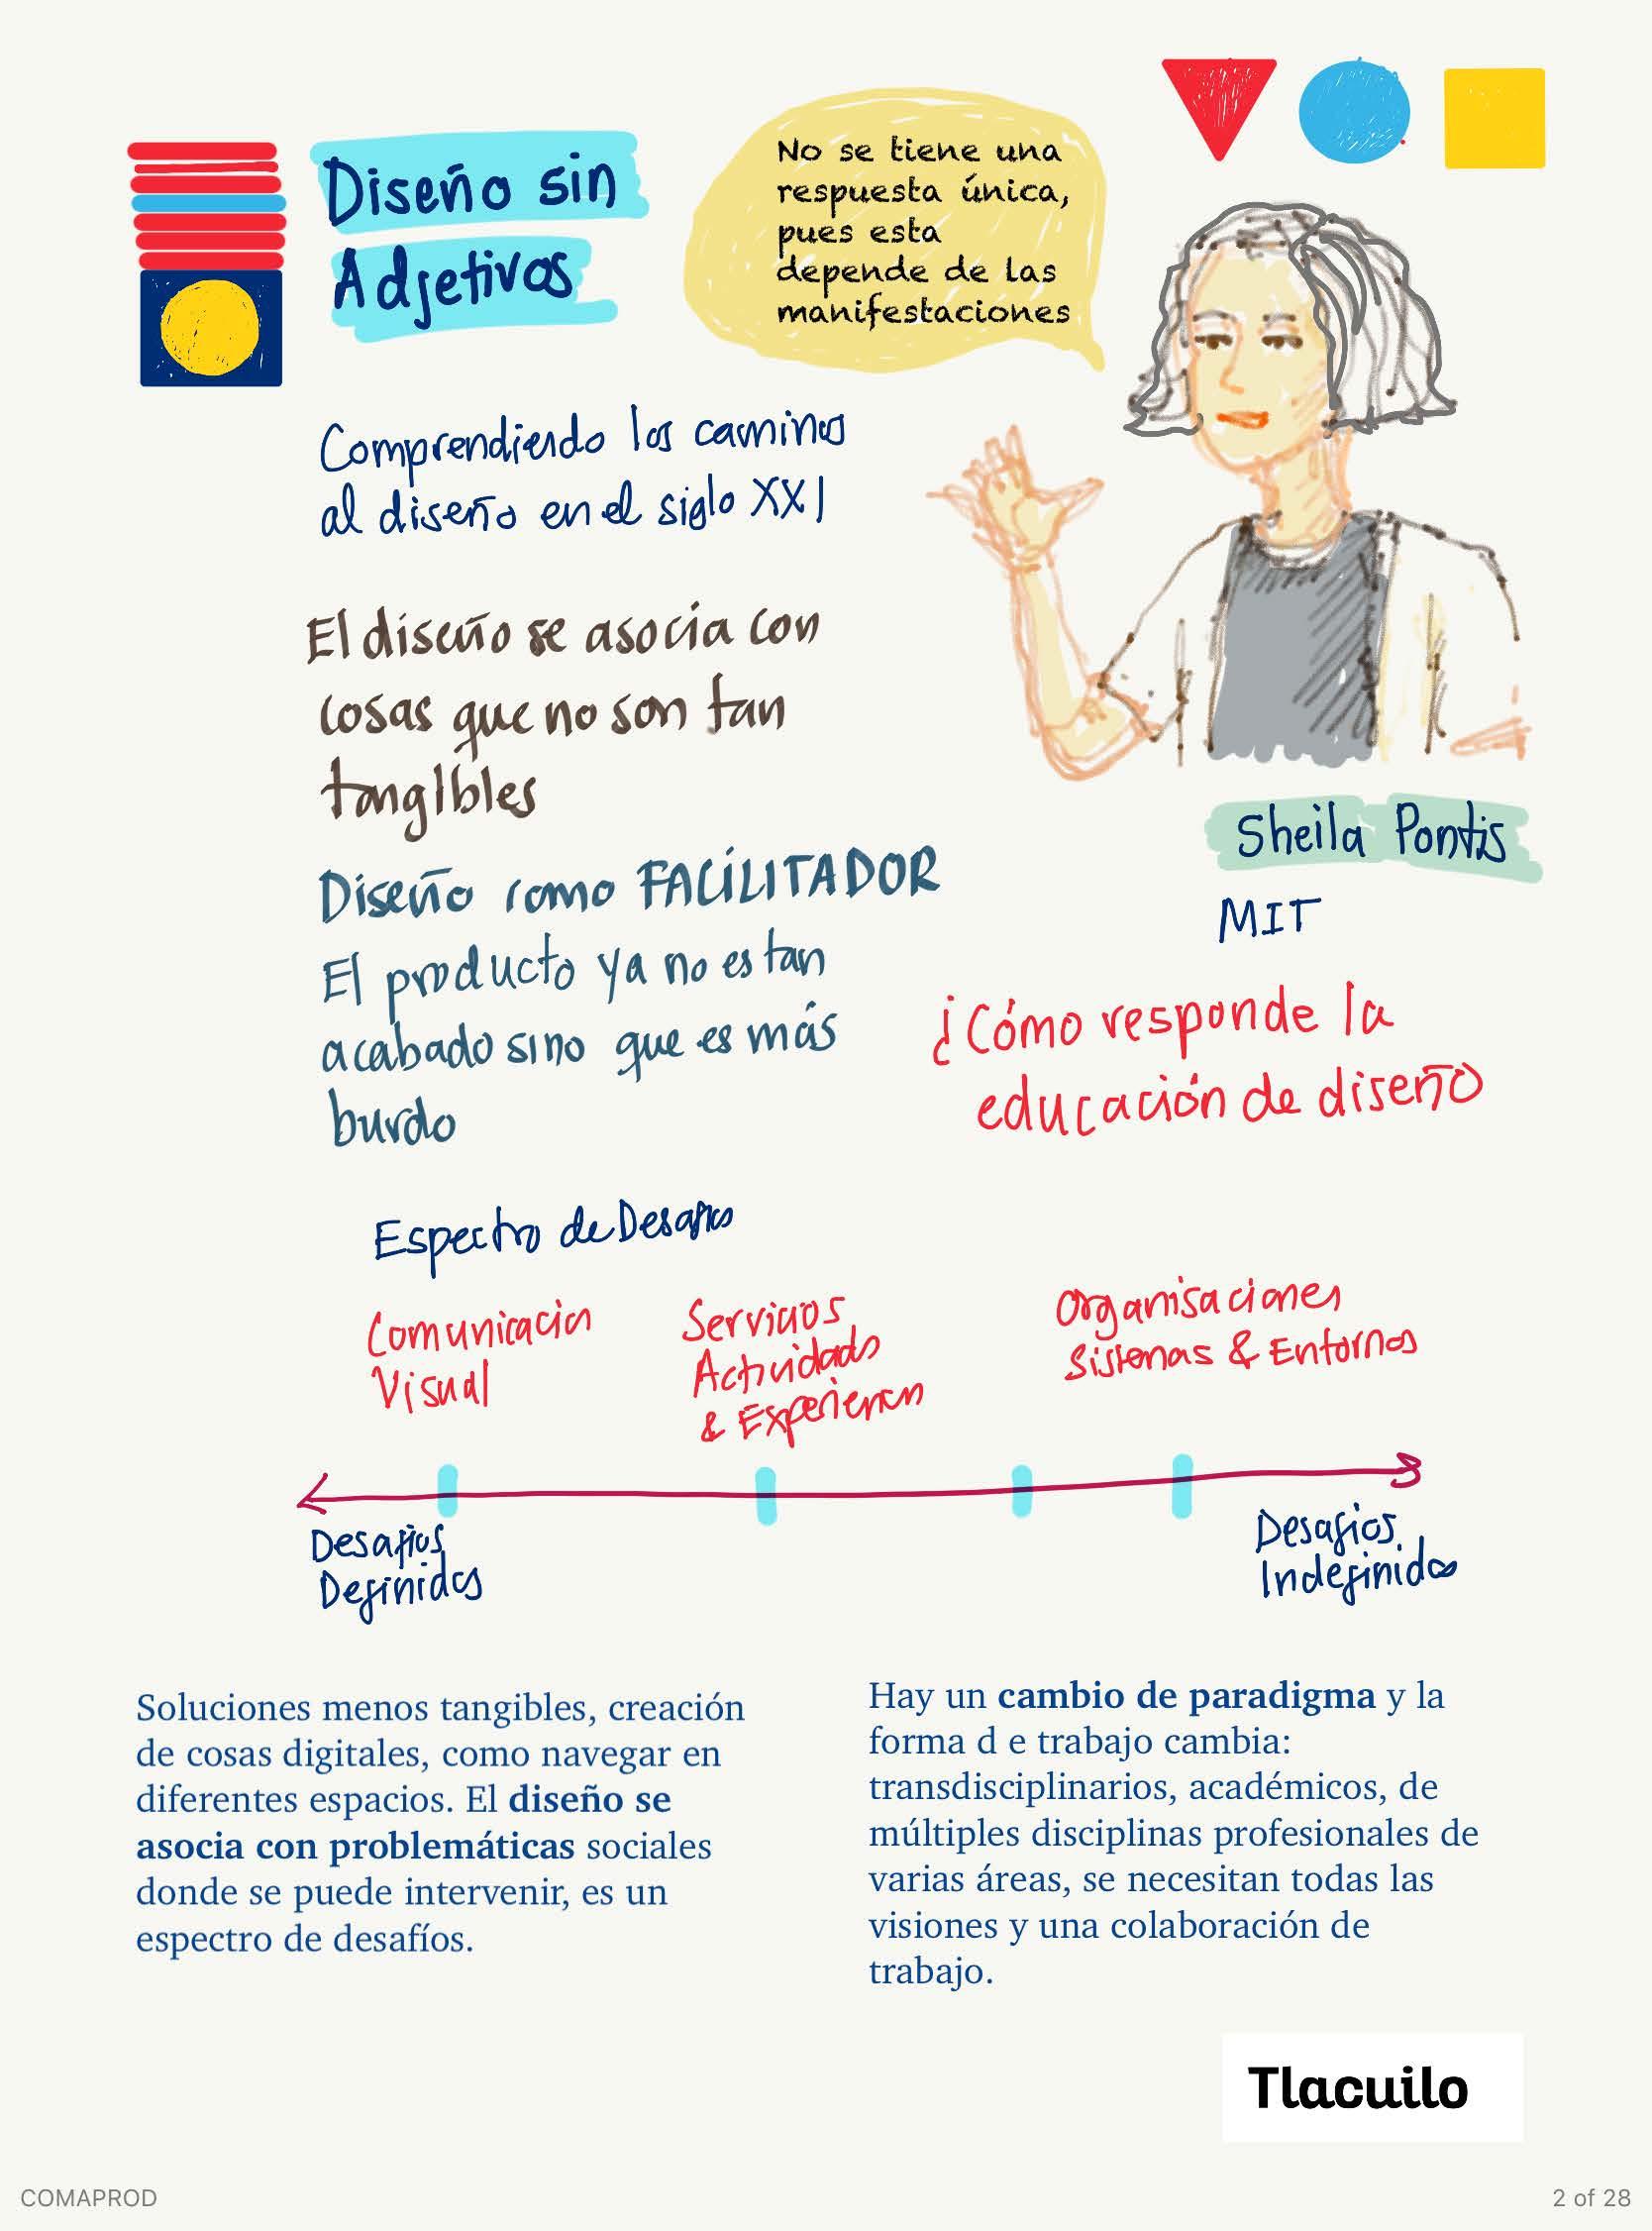 Diseño sin
Adjetivos
No se tiene una
respuesta única,
pues esta
depende de las
manifestaciones
Comprendiendo los caminos
al diseño en el siglo XXI
El diseño se asocia con
cosas que no son tan
tangibles
Diseño como FACILITADOR
El producto ya no es tan
acabado sino que es más
burdo
Sheila Pontis
MIT
¿Cómo responde la
educación de diseño
Espectro de Desafios
Comunicación
Visual
Servicios
Actividades
& Experiencia
Organisaciones
Sistemas & Entornos
Desafios
Definidos
Desafios
Indefinidos
Soluciones menos tangibles, creación
de cosas digitales, como navegar en
diferentes espacios. El diseño se
asocia con problemáticas sociales
donde se puede intervenir, es un
espectro de desafíos.
Hay un cambio de paradigma y la
forma d e trabajo cambia:
transdisciplinarios, académicos, de
múltiples disciplinas profesionales de
varias áreas, se necesitan todas las
visiones y una colaboración de
trabajo.
Tlacuilo
COMAPROD
2 of 28